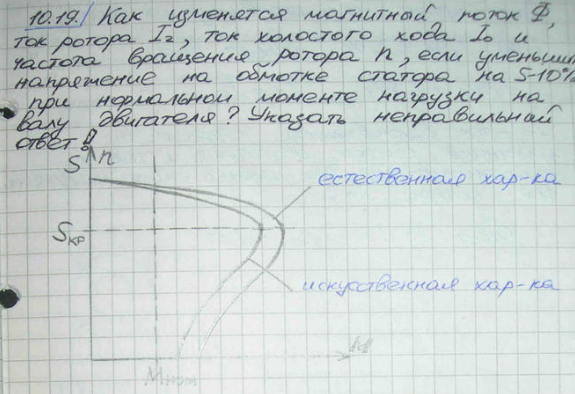 10.19./ Как изменятся магнитный поток Ф,
ток ротора I₂, ток холостого хода I₀ и
частота вращения ротора n, если уменьшить
напряжение на обмотке статора на 5-10%
при нормальном моменте нагрузки на
валу двигателя? Указать неправильный
ответ!
S n
естественная хар-ка
Sкр
искуственная хар-ка
M
Mном